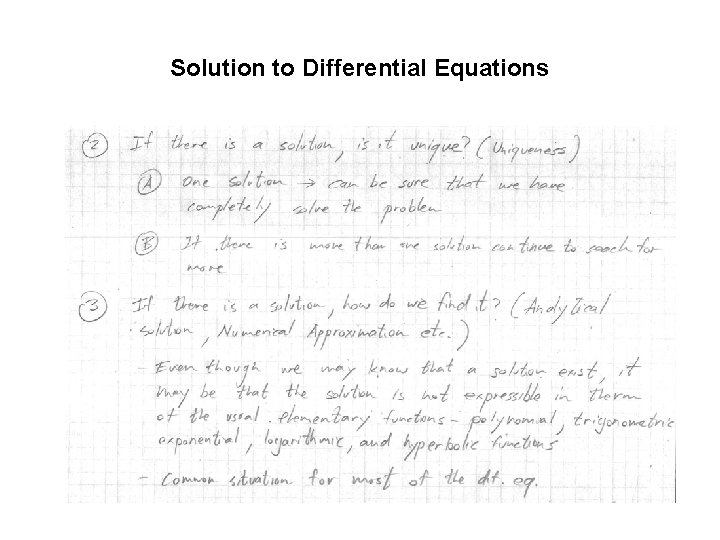 Solution to Differential Equations
② If there is a solution, is it unique? (Uniqueness)
Ⓐ One solution → can be sure that we have
completely solve the problem
Ⓑ If there is more than one solution continue to search for
more
③ If there is a solution, how do we find it? (Analytical
solution, Numerical Approximation etc.)
- Even though we may know that a solution exist, it
may be that the solution is not expressible in therm
of the usual elementary functions - polynomial, trigonometric
exponential, logarithmic, and hyperbolic functions
- Common situation for most of the dif. eq.